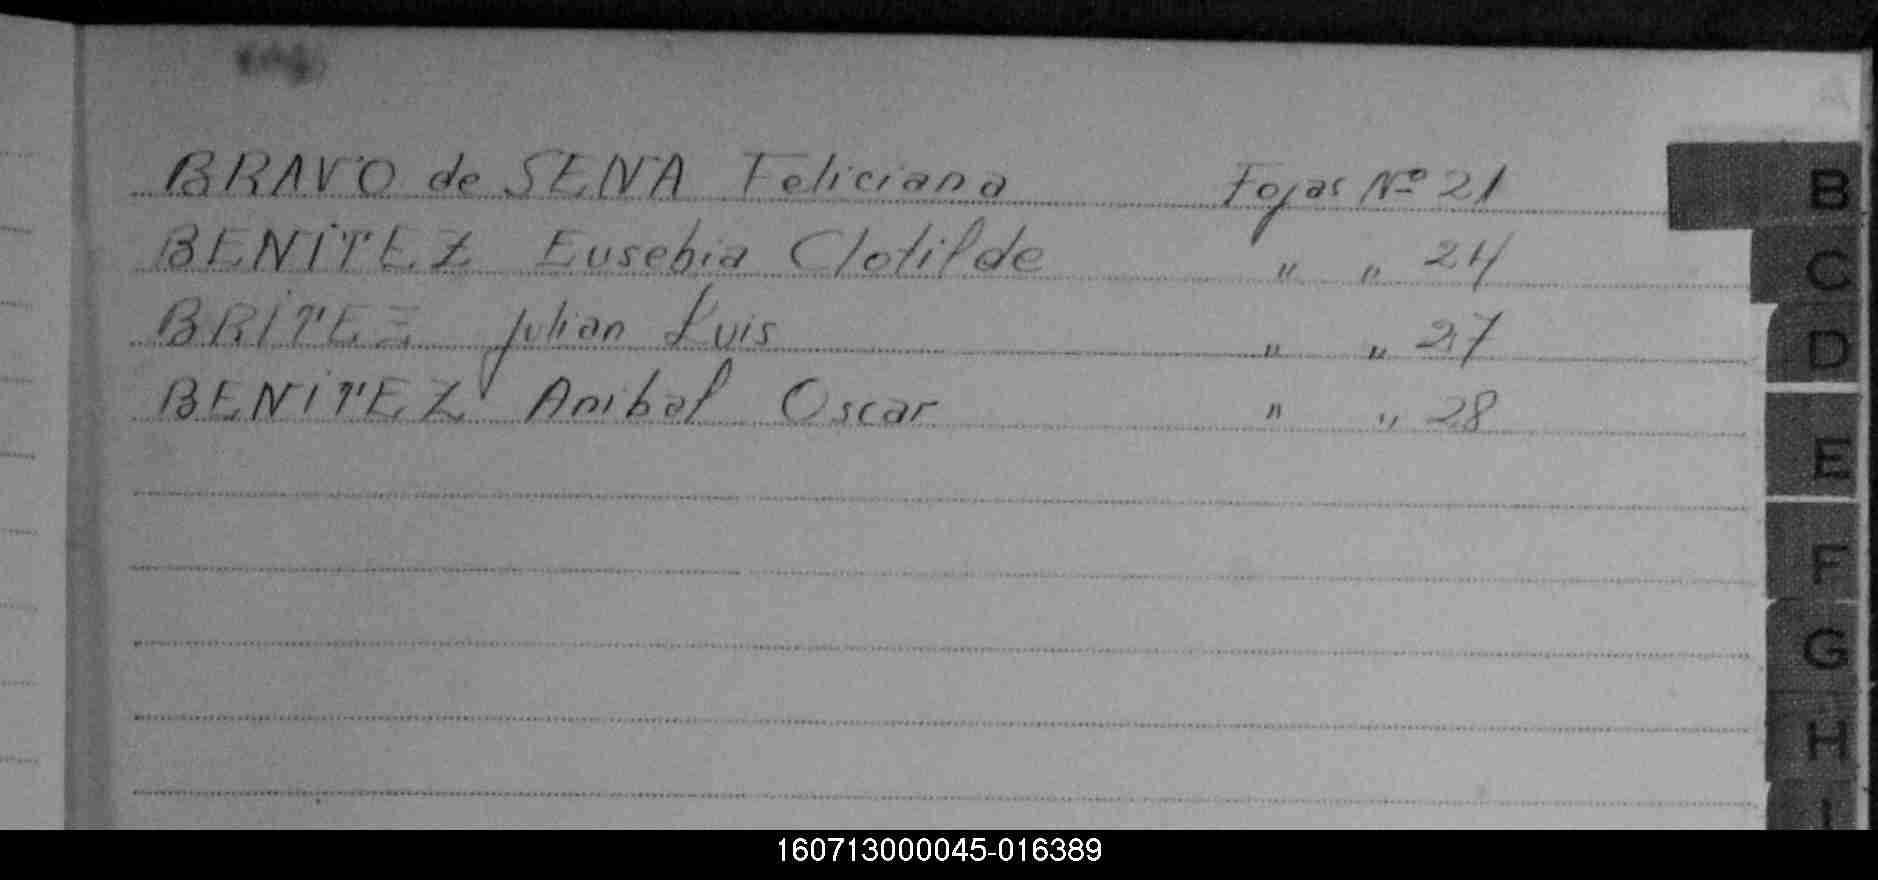 BRAVO de SENA Feliciana Fojas Nº 21
BENITEZ Eusebia Clotilde " " 24
BRITEZ Julian Luis " " 27
BENITEZ Anibal Oscar " " 28
B
C
D
E
F
G
H
I
160713000045-016389